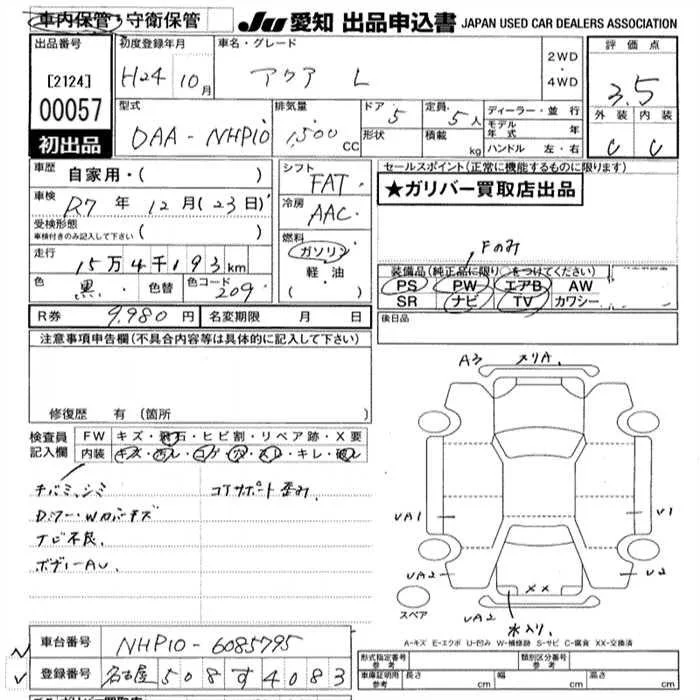 車内保管・守衛保管 JU 愛知 出品申込書 JAPAN USED CAR DEALERS ASSOCIATION
出品番号 初度登録年月 車名・グレード 2WD・4WD 評価点
[2124] H24 10月 アクア L 3.5
00057 型式 排気量 ドア 定員 ディーラー・並行 外装 内装
DAA-NHP10 1,500cc 5 5人 モデル年式 年
初出品 形状 積載 kg ハンドル 左・右 C C
車歴 自家用・( ) シフト FAT セールスポイント(正常に機能するものに限ります)
車検 R7年 12月(23日) 冷房 AAC ★ガリバー買取店出品
受検形態 ( )
車検付きのみ記入して下さい
燃料 ガソリン・軽油・( )
走行 15万4千193km Fのみ
色 黒 色替 色コード 209 装備品(純正品に限り○をつけてください)
PS PW エアB AW
SR ナビ TV カワシー
R券 9,980円 名変期限 月 日 後日品
注意事項申告欄(不具合内容等は具体的に記入して下さい)
修復歴 有(箇所
A3 メリA
検査員記入欄 FW キズ・飛石・ヒビ割・リペア跡・X要
内装 キズ・汚レ・コゲ・穴・スレ・キレ・破レ
チバミ、シミ コアサポート歪み
ナビ不良、
ボディーAU、
UA1 U1
UA2 U2
XX
スペア UA2 水入り、
A-キズ E-エクボ U-凹み W-補修跡 S-サビ C-腐食 XX-交換済
車台番号 NHP10-6085795
形式指定番号 参考 類別区分番号 参考
登録番号 名古屋 508 す 4083
車庫証明用 参考 長さ cm 幅 cm 高さ cm